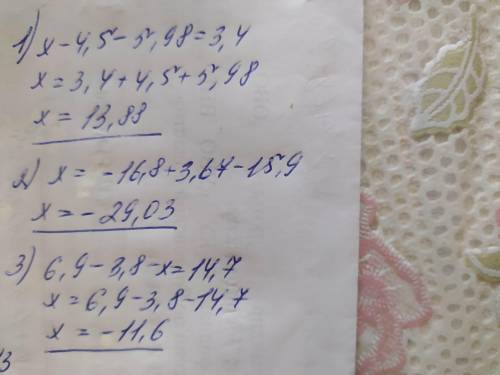 1) x - 4,5 - 5,98 = 3,4
x = 3,4 + 4,5 + 5,98
x = 13,88
2) x = -16,8 + 3,67 - 15,9
x = -29,03
3) 6,9 - 3,8 - x = 14,7
x = 6,9 - 3,8 - 14,7
x = -11,6